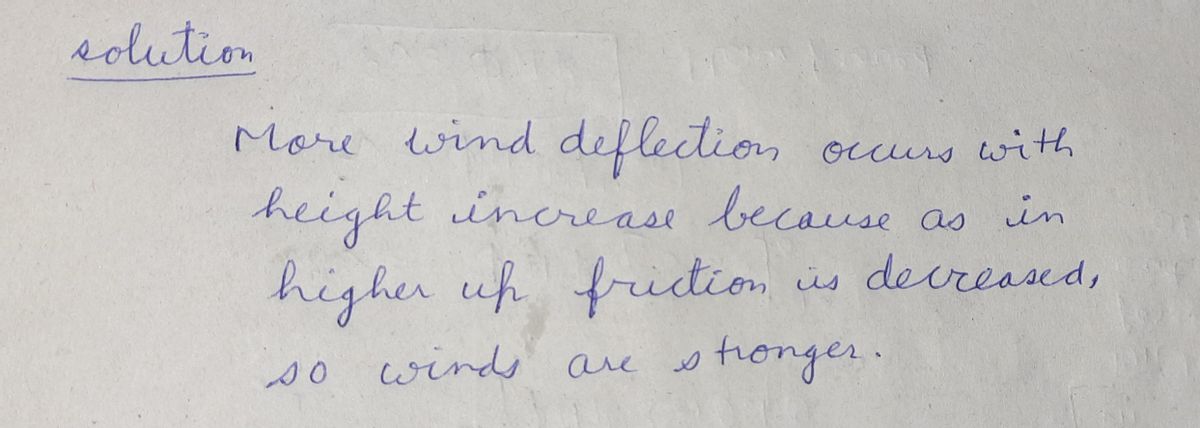 solution
More wind deflection occurs with
height increase because as in
higher up friction is decreased,
so winds are stronger.